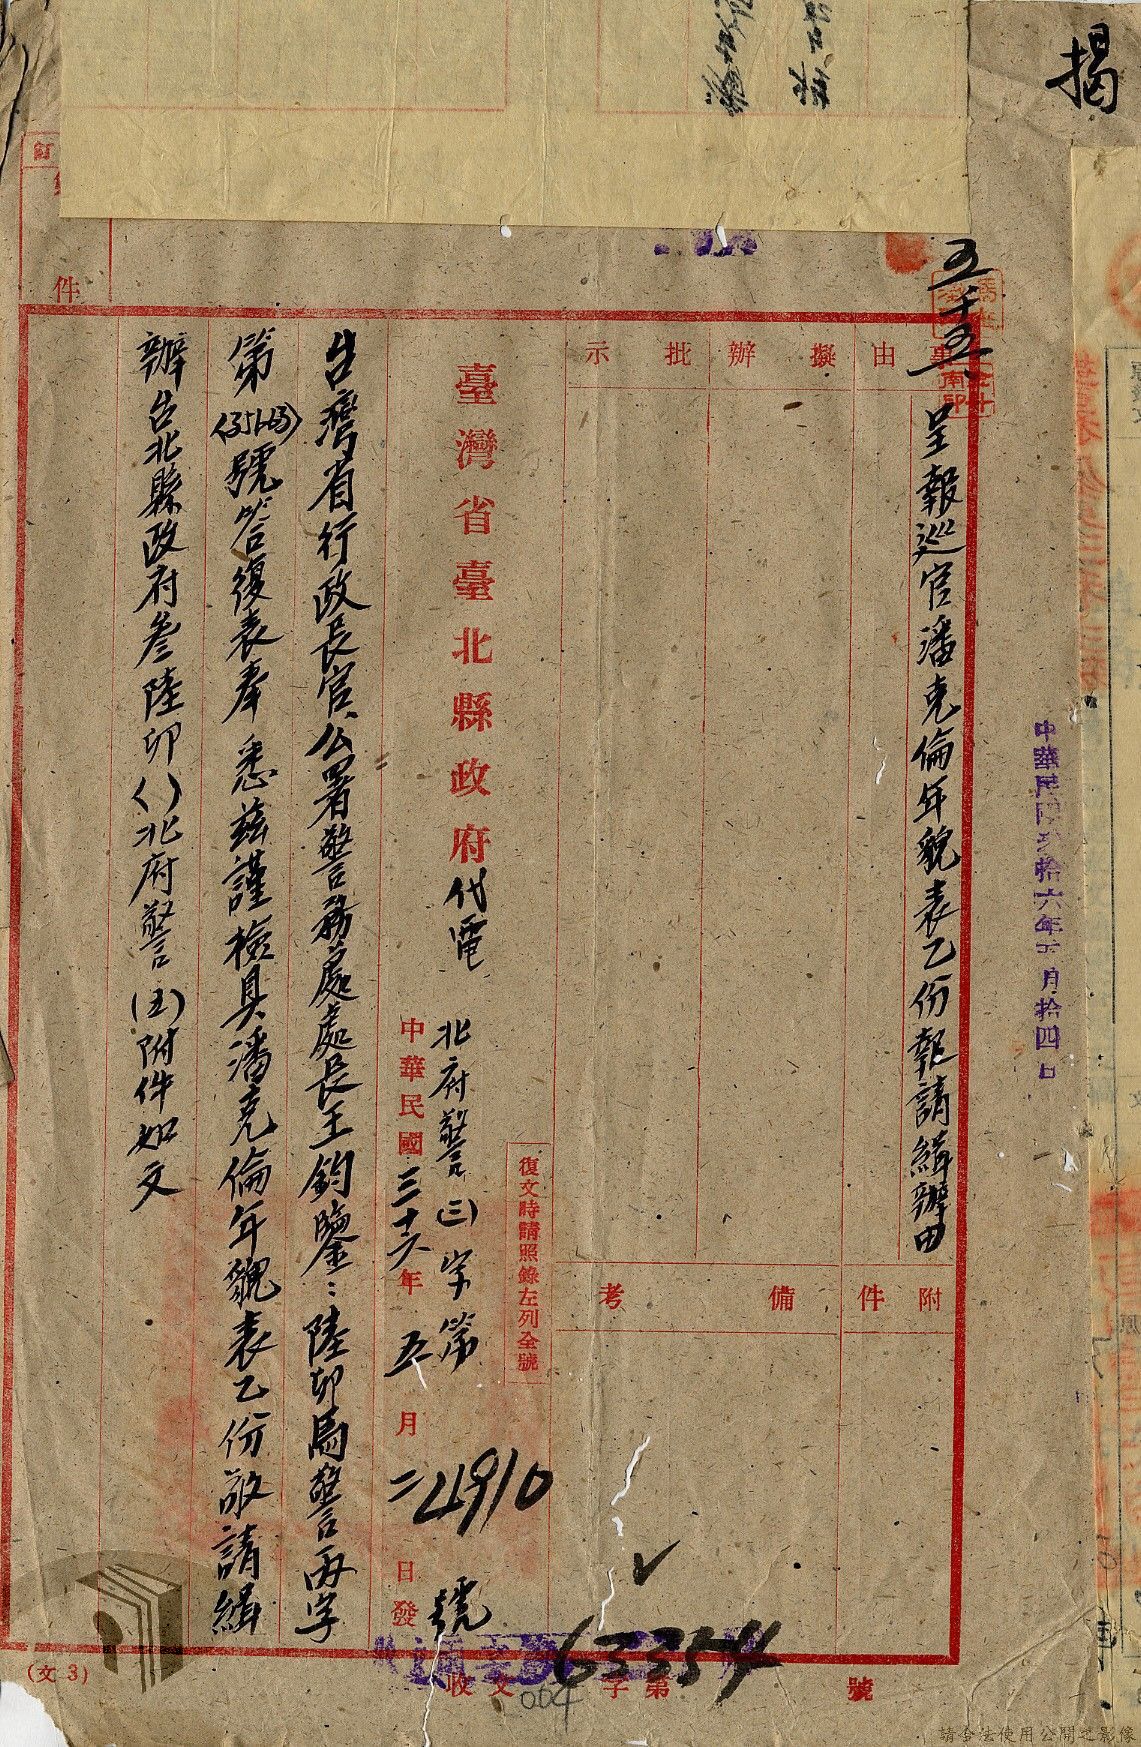 揭
五、十五、
呈報巡官潘克倫年貌表乙份報請緝辦由
中華民國叁拾六年五月拾四日
事由
擬辦
批示
附件
備考
件
訂
臺灣省臺北縣政府代電
復文時請照錄左列全號
北府警(三)字第4910號
中華民國三十六年五月二日發
台灣省行政長官公署警務處處長王鈞鑒:陸卯馬警丙字
第(3516)號答復表奉 悉茲謹檢具潘克倫年貌表乙份敬請緝
辦台北縣政府叁陸卯()北府警(五)附件如文
收文 字第63354號
004
(文3)
請合法使用公開之影像